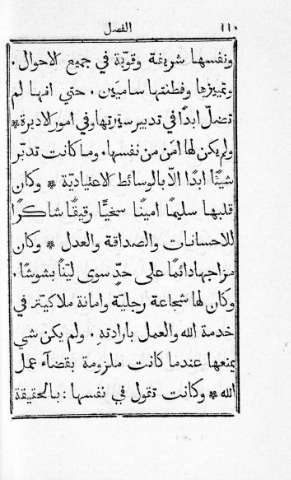 ١١٠ الفصل
ونفسها شريفة وقويّة في جميع الاحوال.
وتمييزها وفطنتها ساميَين. حتي انها لم
تضلّ ابدًا في تدبير سيرتها وفي امور لاديرة *
ولم يكن لها امَن من نفسها. وما كانت تدبّر
شيئًا ابدًا الّا بالوسائط لاعتياديّة * وكان
قلبها سليمًا امينًا سخيًّا رقيقًا شاكرًا
للاحسانات والصداقة والعدل * وكان
مزاجها دائمًا على حدٍّ سوى ليّنًا بشوشًا.
وكان لها شجاعة رجليّة وامانة ملاكيّة في
خدمة الله والعمل بارادته. ولم يكن شي
يمنعها عندما كانت ملزومة بقضآء عمل
الله * وكانت تقول في نفسها: بالحقيقة